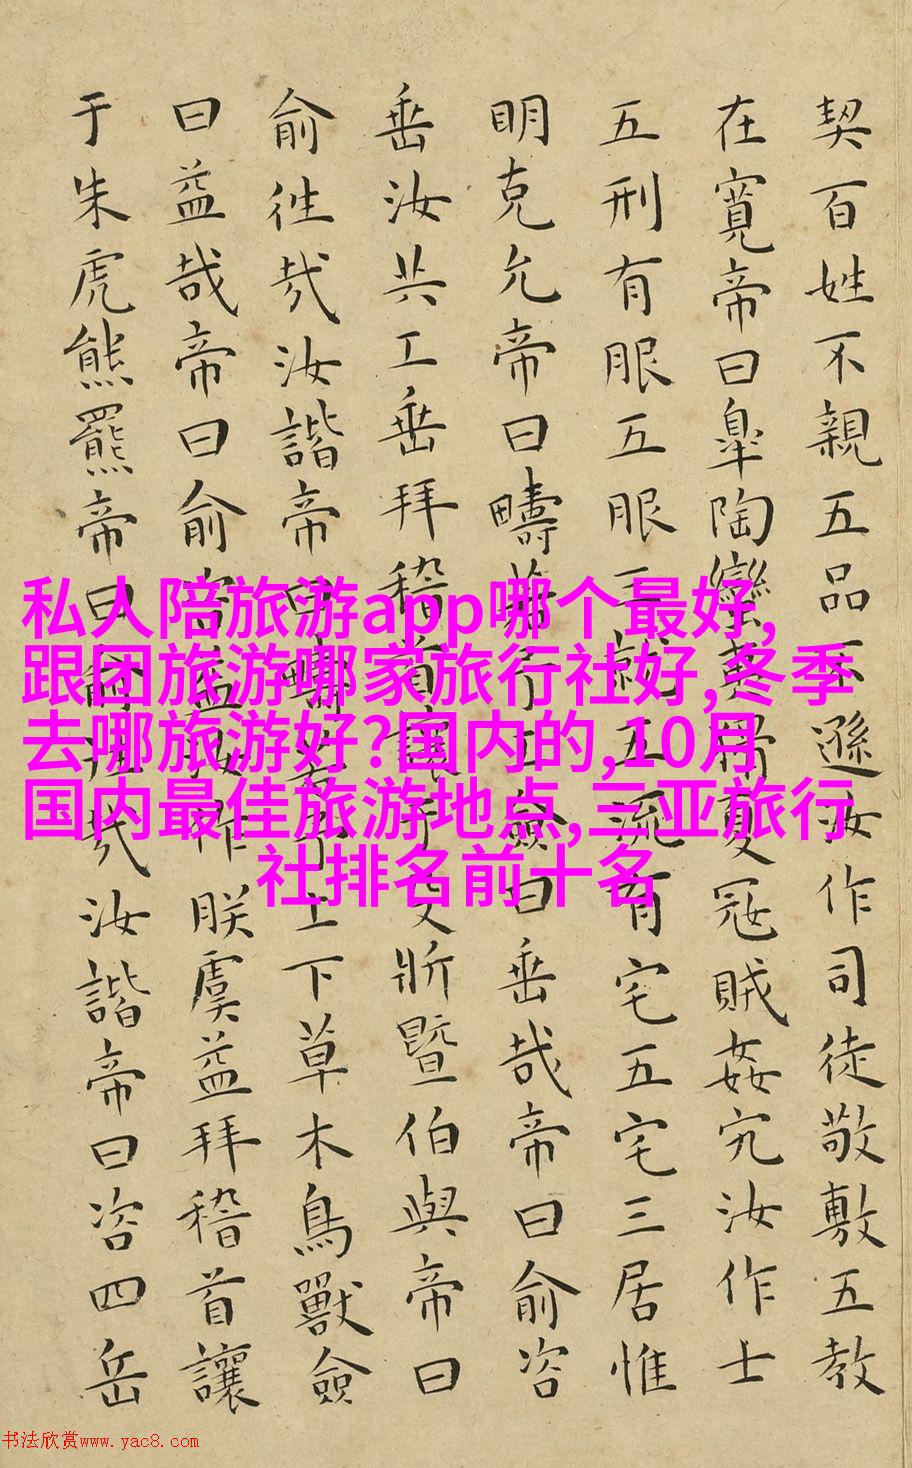 契百姓不親五品不遜汝作司徒敬敷五教
在寬帝曰臯陶蠻夷猾夏寇賊姦宄汝作士
五刑有服五服三就五流有宅五宅三居惟
明克允帝曰疇若予工僉曰垂哉帝曰俞咨
垂汝共工垂拜稽首讓于殳斨暨伯與帝曰
俞往哉汝諧帝曰疇若予上下草木鳥獸僉
曰益哉帝曰俞咨益汝作朕虞益拜稽首讓
于朱虎熊羆帝曰俞往哉汝諧帝曰咨四岳
私人陪旅游app哪个最好,
跟团旅游哪家旅行社好,冬季
去哪旅游好?国内的,10月
国内最佳旅游地点,三亚旅行
社排名前十名
书法欣赏www.yac8.com